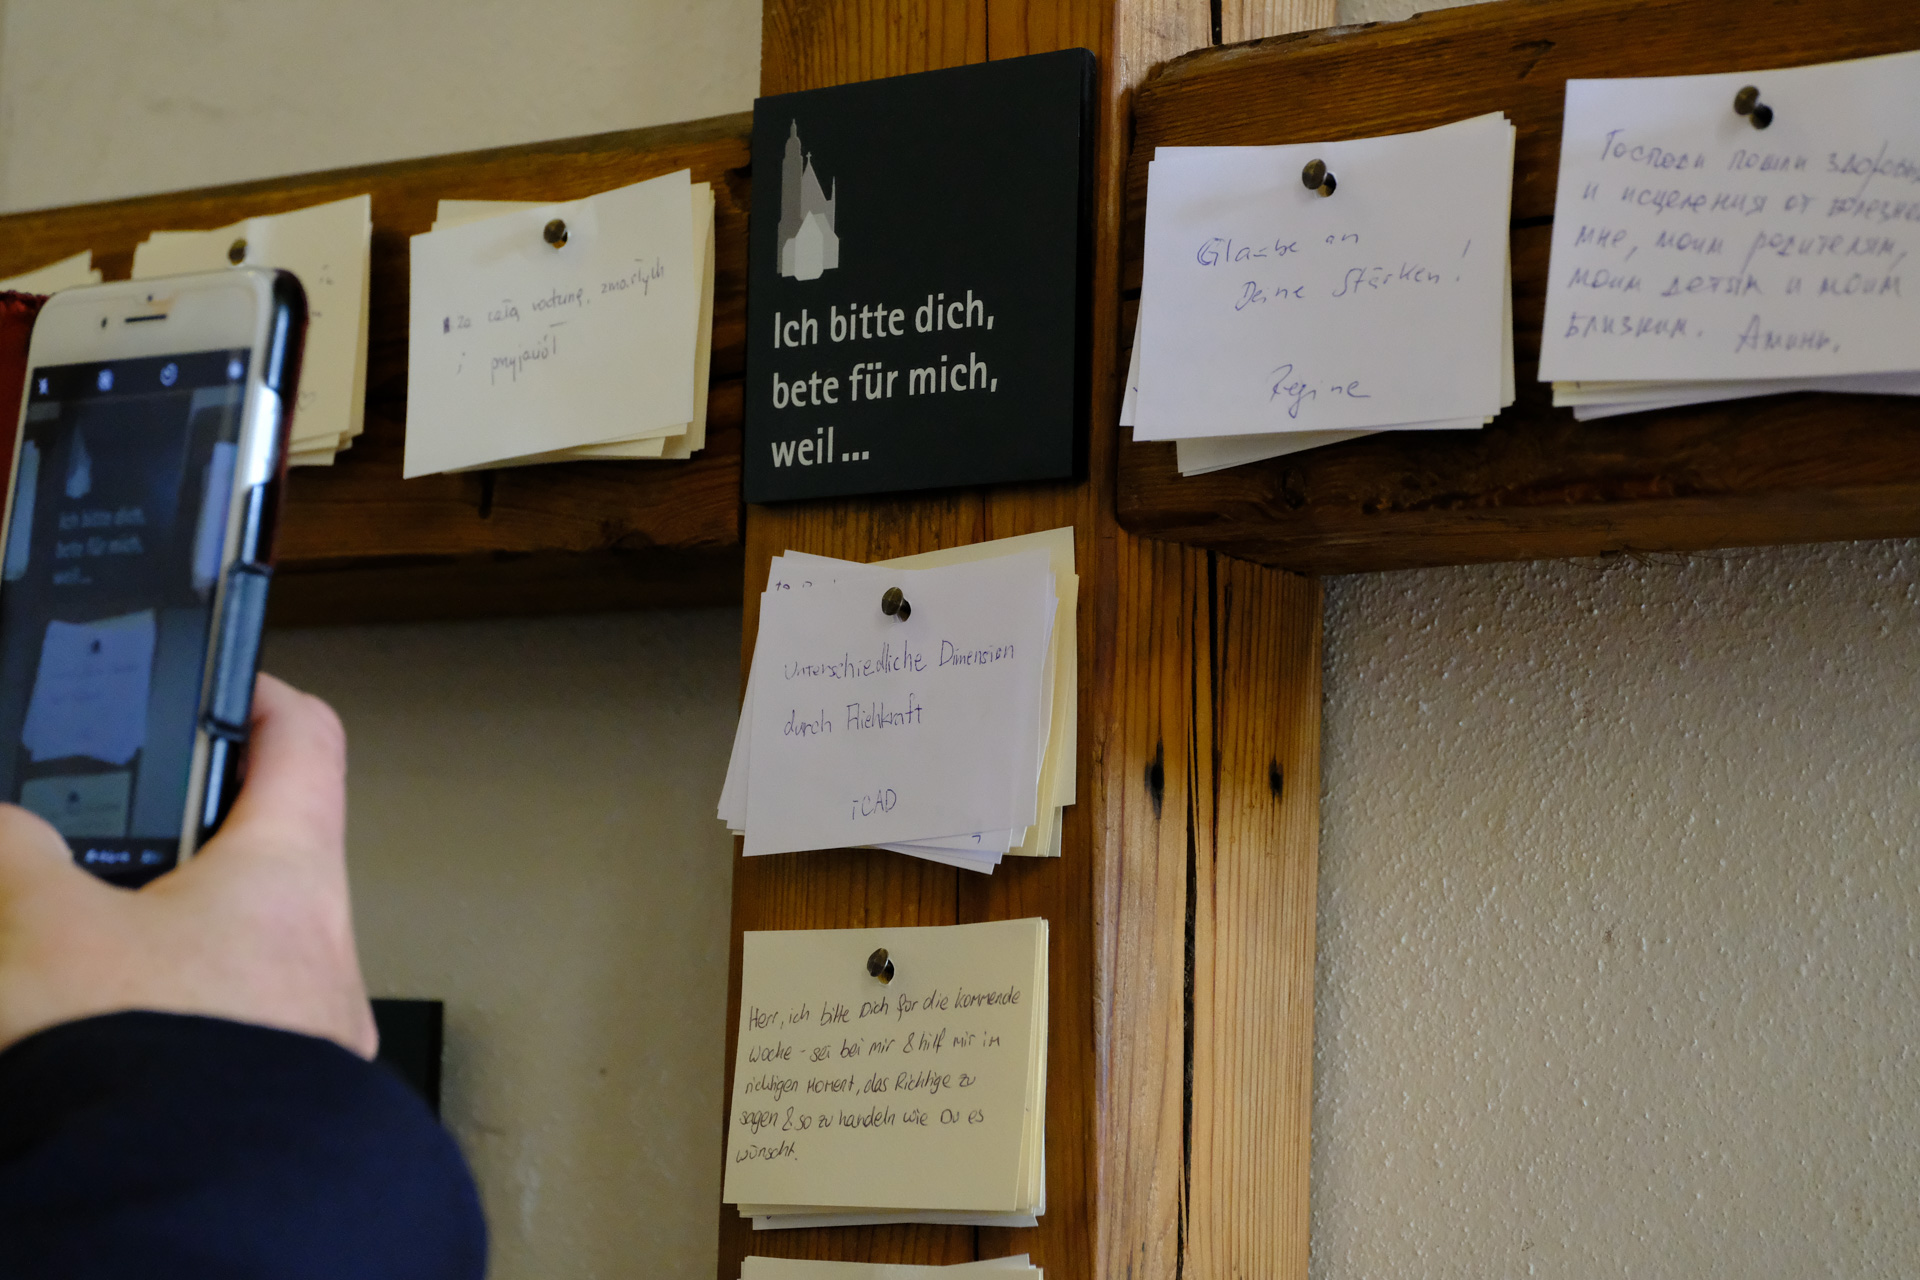 za całą rodzinę, zmarłych
i przyjaciół
Ich bitte dich,
bete für mich,
weil ...
Glaube an
Deine Stärken!
Regine
Господи пошли здоровья
и исцеления от болезней
мне, моим родителям,
моим детям и моим
близким. Аминь.
Unterschiedliche Dimension
durch Fliehkraft
iCAD
Herr, ich bitte Dich für die kommende
Woche - sei bei mir & hilf mir im
richtigen Moment, das Richtige zu
sagen & so zu handeln wie Du es
wünscht.
Ich bitte dich,
bete für mich,
weil ...